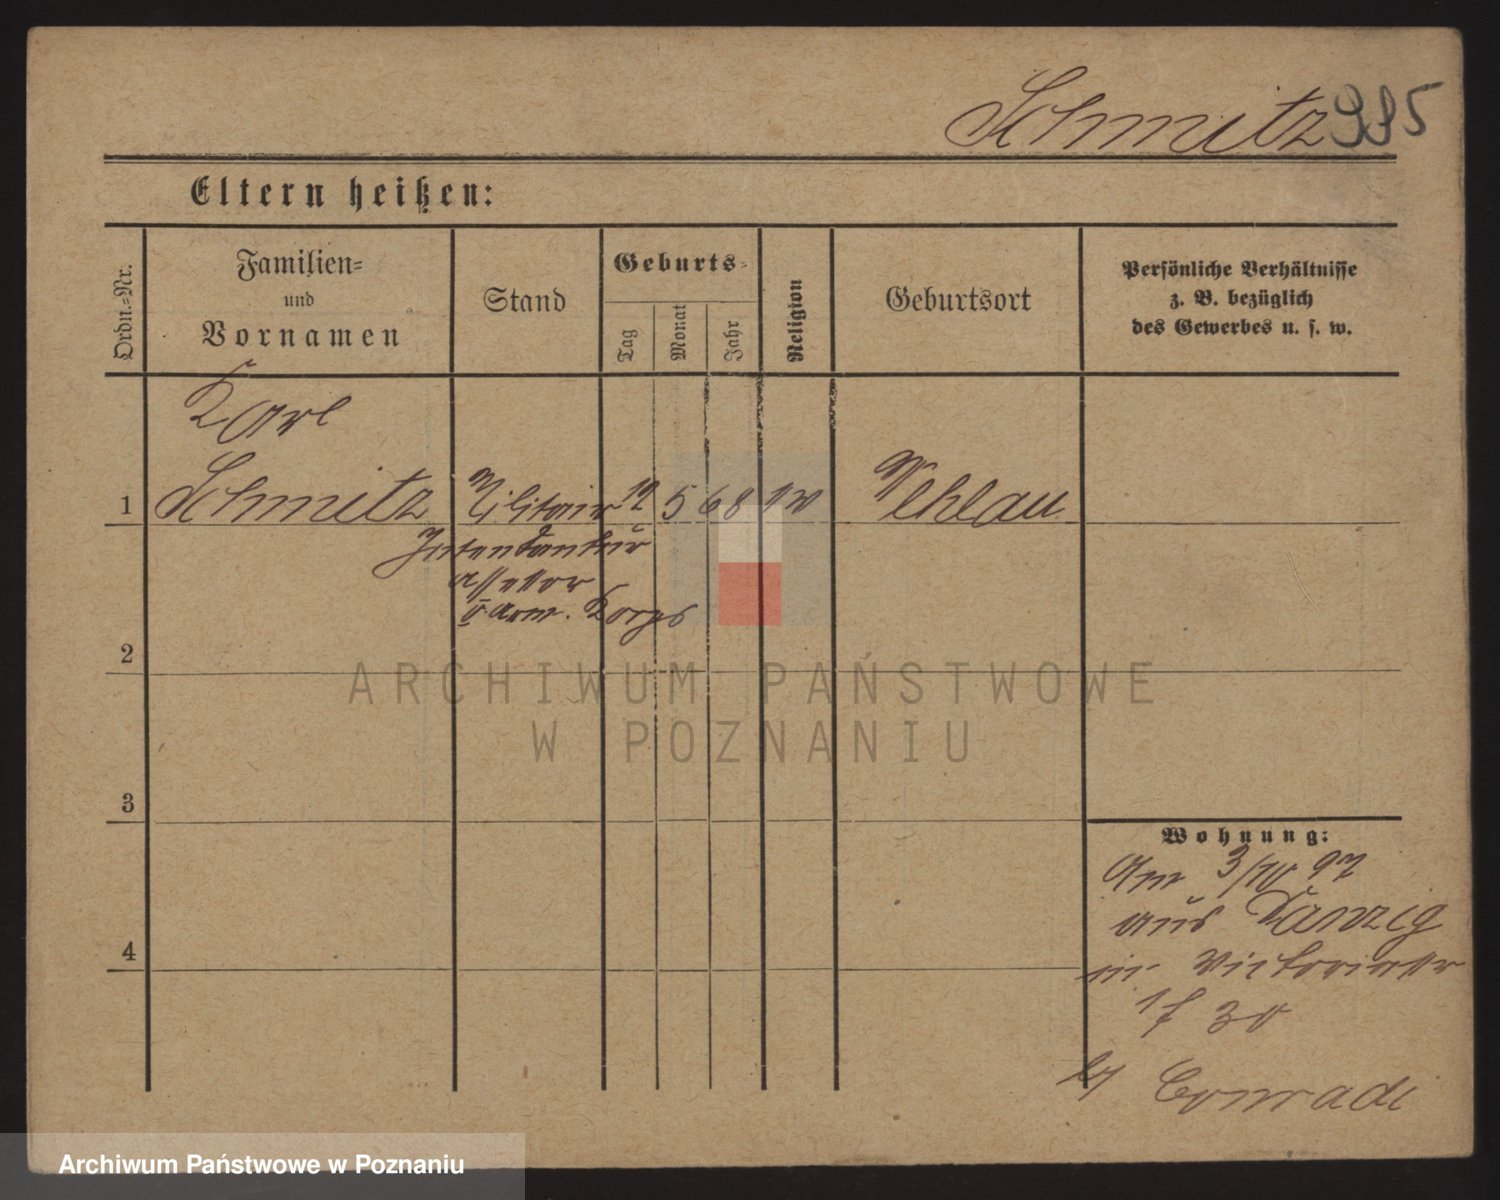 Schmitz 995
Eltern heißen:
Ordn.-Nr.
Familien-
und
Vornamen
Stand
Geburts-
Tag
Monat
Jahr
Religion
Geburtsort
Persönliche Verhältnisse
z. B. bezüglich
des Gewerbes u. s. w.
Karl
1 Schmitz Militair 12 5 68 Wehlau
Intendantur
assessor
V. Arm. Korps
2
ARCHIWUM PAŃSTWOWE
W POZNANIU
3
Wohnung:
Am 3/10 97
aus Danzig
in Victoriastr
30
4
b/ Conradi
Archiwum Państwowe w Poznaniu